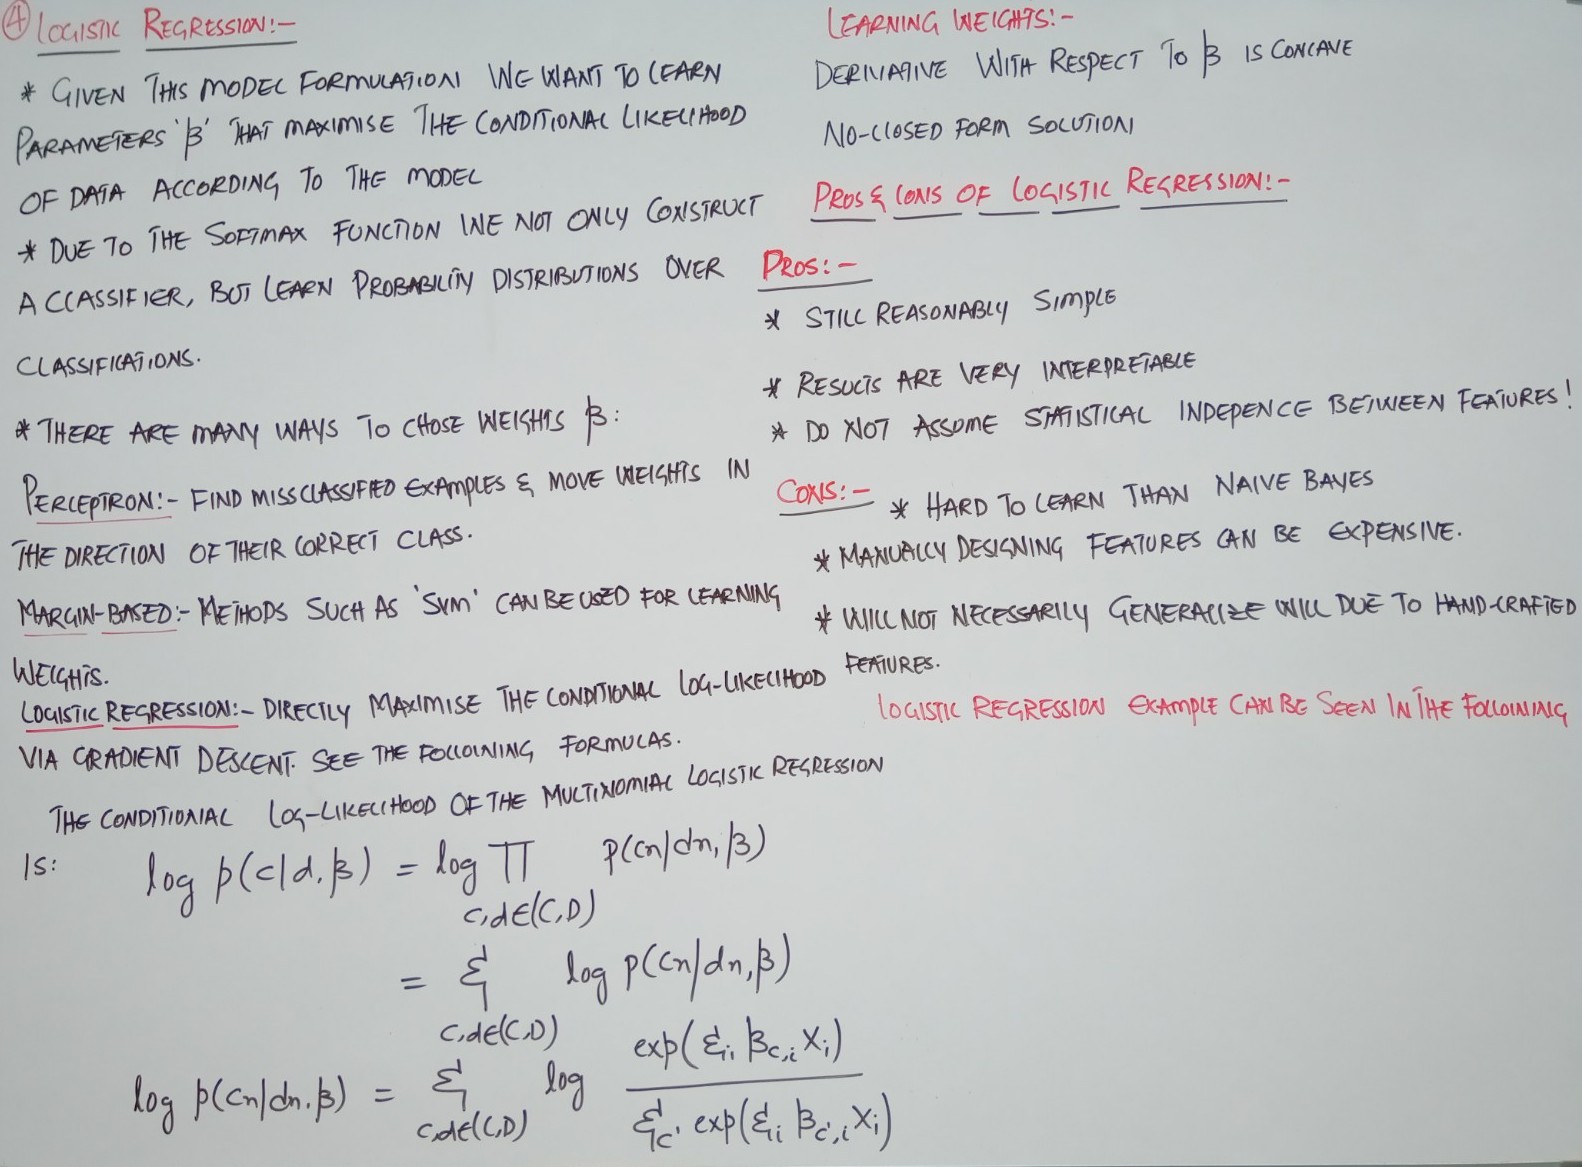 4 LOGISTIC REGRESSION:-
* GIVEN THIS MODEL FORMULATION WE WANT TO LEARN
PARAMETERS 'β' THAT MAXIMISE THE CONDITIONAL LIKELIHOOD
OF DATA ACCORDING TO THE MODEL
* DUE TO THE SOFTMAX FUNCTION WE NOT ONLY CONSTRUCT
A CLASSIFIER, BUT LEARN PROBABILITY DISTRIBUTIONS OVER
CLASSIFICATIONS.
* THERE ARE MANY WAYS TO CHOSE WEIGHTS β:
PERCEPTRON:- FIND MISSCLASSIFIED EXAMPLES & MOVE WEIGHTS IN
THE DIRECTION OF THEIR CORRECT CLASS.
MARGIN-BASED:- METHODS SUCH AS 'SVM' CAN BE USED FOR LEARNING
WEIGHTS.
LOGISTIC REGRESSION:- DIRECTLY MAXIMISE THE CONDITIONAL LOG-LIKELIHOOD
VIA GRADIENT DESCENT. SEE THE FOLLOWING FORMULAS.
THE CONDITIONAL LOG-LIKELIHOOD OF THE MULTINOMIAL LOGISTIC REGRESSION
IS: log p(c|d,β) = log Π p(cn|dn,β)
c,d∈(C,D)
= Σ log p(cn|dn,β)
c,d∈(C,D)
log p(cn|dn.β) = Σ log exp(Σi βc,i Xi) / Σc' exp(Σi βc',i Xi)
c,d∈(C,D)
LEARNING WEIGHTS:-
DERIVATIVE WITH RESPECT TO β IS CONCAVE
NO-CLOSED FORM SOLUTION
PROS & CONS OF LOGISTIC REGRESSION:-
PROS:-
* STILL REASONABLY SIMPLE
* RESULTS ARE VERY INTERPRETABLE
* DO NOT ASSUME STATISTICAL INDEPENCE BETWEEN FEATURES!
CONS:- * HARD TO LEARN THAN NAIVE BAYES
* MANUALLY DESIGNING FEATURES CAN BE EXPENSIVE.
* WILL NOT NECESSARILY GENERALIZE WILL DUE TO HAND-CRAFTED
FEATURES.
LOGISTIC REGRESSION EXAMPLE CAN BE SEEN IN THE FOLLOWING